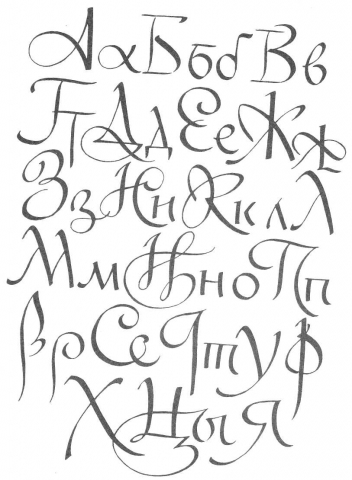 АаБббВв
ГгДдЕеЖж
ЗзНнКклЛ
МмНноПп
РрСсЧтуф
ХЦыЯ